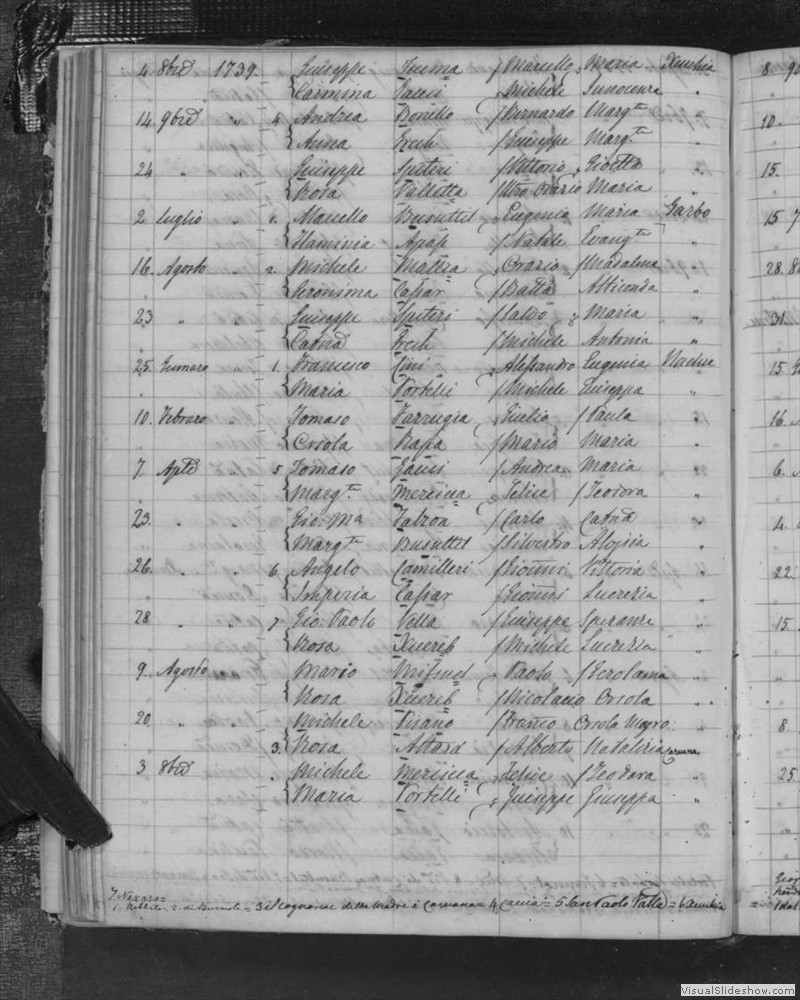 4 8bre 1739. Giuseppe Xuema / Marcello Maria Xeuchia 8.
Carmina Zauri Michele Innocenza "
14 9bre " 4 Andrea Bonello / Bernardo Margta " 10.
Anna Grech / Giuseppe Margta "
24 " " Giuseppe Spiteri / Vittorio Gioetta " 15.
Rosa Valletta / Mro Orazio Maria "
2 Luglio " 1. Marcello Busuttil Eugenio Maria Garbo 15
Flaminia Agius / Natale Evangta "
16. Agosto " 2. Michele Mallia Orazio / Madalena " 28.
Geronima Caspar / Batta Atticonda "
23 " " Giuseppe Spiteri / Salvo Maria " 31.
Catna Grech / Michele Antonia "
25. Gennaro " 1. Francesco Cini Alessandro Eugenia Naxue 15
Maria Portelli / Michele Giuseppa "
10. Febraro " Tomaso Farrugia Giulio / Paula " 16.
Orsola Rapa / Mario Maria "
7 Aple " 5 Tomaso Zauri / Andrea Maria " 6.
Margta Mersieca Felice / Teodora "
23. " " Gio: Ma Zabron / Carlo Catna " 4.
Margta Busuttil / Silvestro Aloisia "
26. " " 6. Angelo Camilleri / Gioanni Vittoria " 22.
Imperia Caspar / Gioanni Lucrezia "
28 " " 7 Gio: Paolo Vella / Giuseppe Speranza " 15.
Rosa Xuereb / Michele Lucrezia "
9. Agosto Mario Mifsud Paolo / Gerolama "
Rosa Xuereb / Nicolacio Orsola "
20. " " Michele Pisano / Franco Orsola " 8.
3. Rosa Attard / Alberto Natalizia Caruana
3 8bre " Michele Mersieca Felice / Teodora " 25
Maria Portelli Giuseppe Giuseppa "
7 Naxaro =
3 il Cognome della Madre è Caruana = 4. = 5 San Paolo = 6 Xeuchia